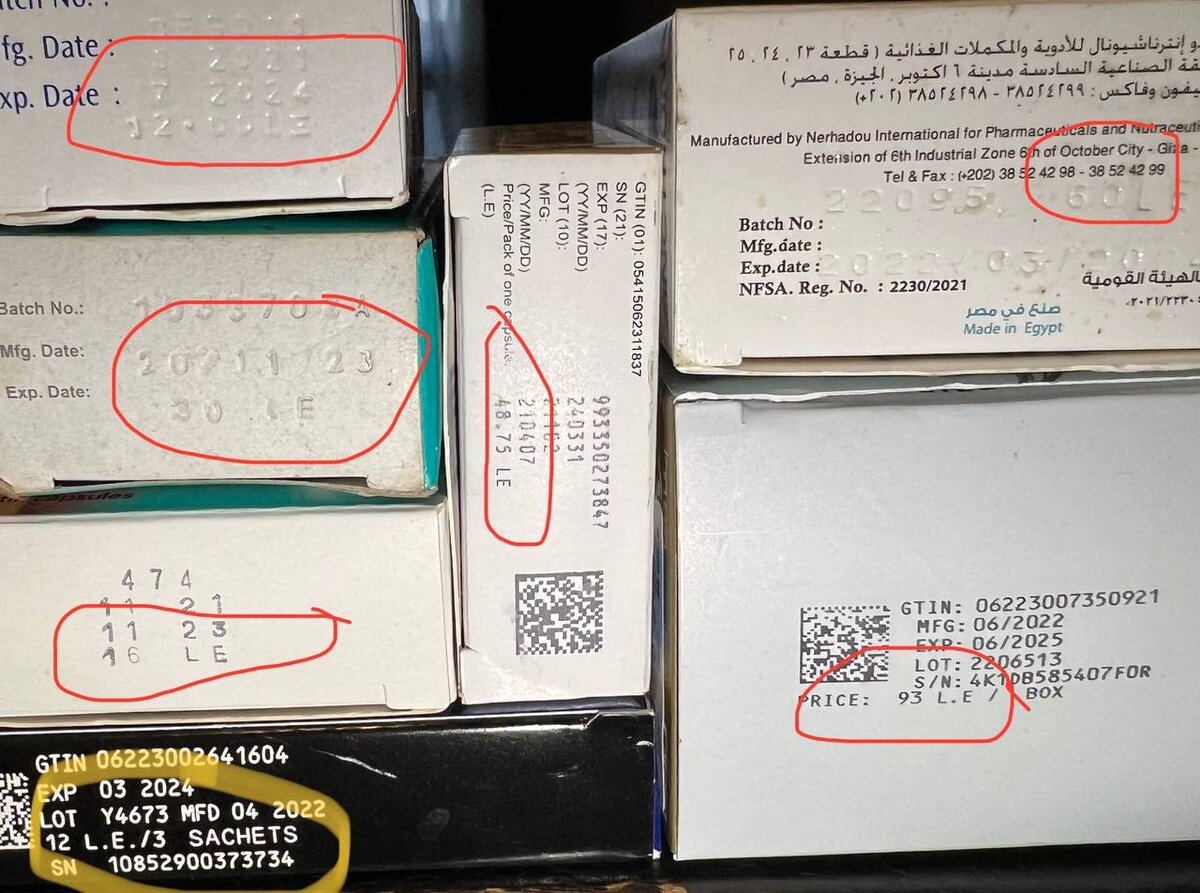 fg. Date :
xp. Date :
7 2024
12.00LE
Batch No.:
Mfg. Date:
Exp. Date:
30 LE
capsules
474
11 21
11 23
16 LE
GTIN 06223002641604
EXP 03 2024
LOT Y4673 MFD 04 2022
12 L.E./3 SACHETS
SN 10852900373734
GTIN (01): 05415062311837
SN (21): 993350273847
EXP (17): 240331
(YY/MM/DD)
LOT (10):
MFG: 210407
(YY/MM/DD)
Price/Pack of one capsule: 48.75 LE
(L.E)
إنترناشيونال للأدوية والمكملات الغذائية ( قطعة ٢٣ ، ٢٤ ، ٢٥
الصناعية السادسة مدينة ٦ اكتوبر ، الجيزة ، مصر )
وفاكس : ٣٨٥٢٤٢٩٩ - ٣٨٥٢٤٢٩٨ (٢٠٢+)
Manufactured by Nerhadou International for Pharmaceuticals and
Extension of 6th Industrial Zone 6th of October City - Giza -
Tel & Fax : (+202) 38 52 42 98 - 38 52 42 99
22095 60LE
Batch No :
Mfg.date :
Exp.date :
NFSA. Reg. No. : 2230/2021
القومية
صنع في مصر
Made in Egypt
GTIN: 06223007350921
MFG: 06/2022
EXP: 06/2025
LOT: 2206513
S/N: 4K1DB585407FOR
PRICE: 93 L.E / BOX